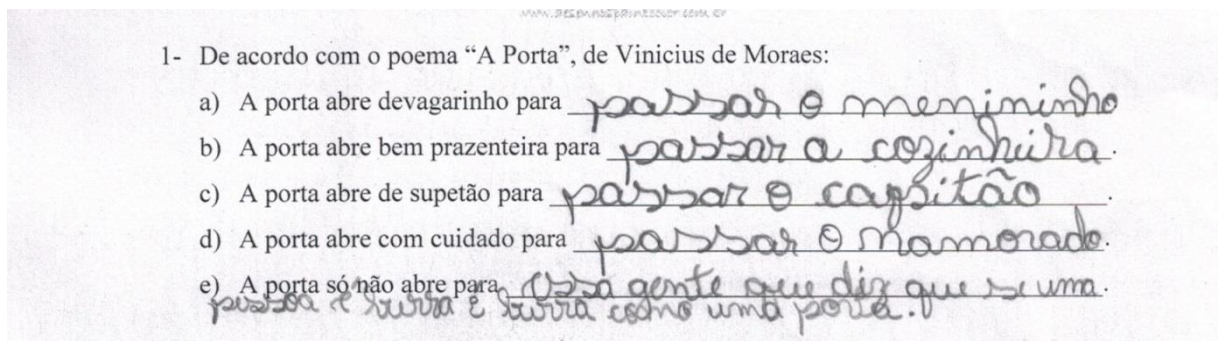 1- De acordo com o poema “A Porta”, de Vinicius de Moraes:
a) A porta abre devagarinho para passar o menininho
b) A porta abre bem prazenteira para passar a cozinheira.
c) A porta abre de supetão para passar o capsitão.
d) A porta abre com cuidado para passar o namorado.
e) A porta só não abre para Essa gente que diz que se uma.
pessoa é burra é burra como uma porta.